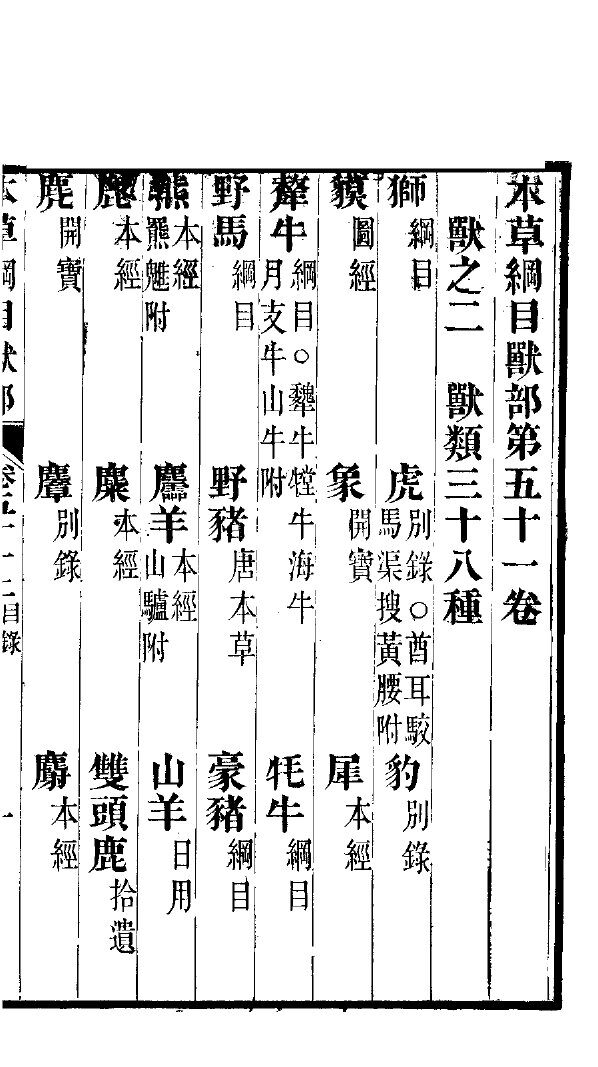 本草綱目獸部第五十一卷
獸之二　獸類三十八種
獅綱目　虎別錄○酋耳駮馬渠搜黃腰附　豹別錄
貘圖經　象開寶　犀本經
犛牛綱目○牛牛海牛月支牛山牛附　牦牛綱目
野馬綱目　野豬唐本草　豪豬綱目
熊本經羆魋附　麢羊本經山驢附　山羊日用
鹿本經　麋本經　雙頭鹿拾遺
麂開寶　麞別錄　麝本經
本草綱目獸部　卷五十一目錄　一